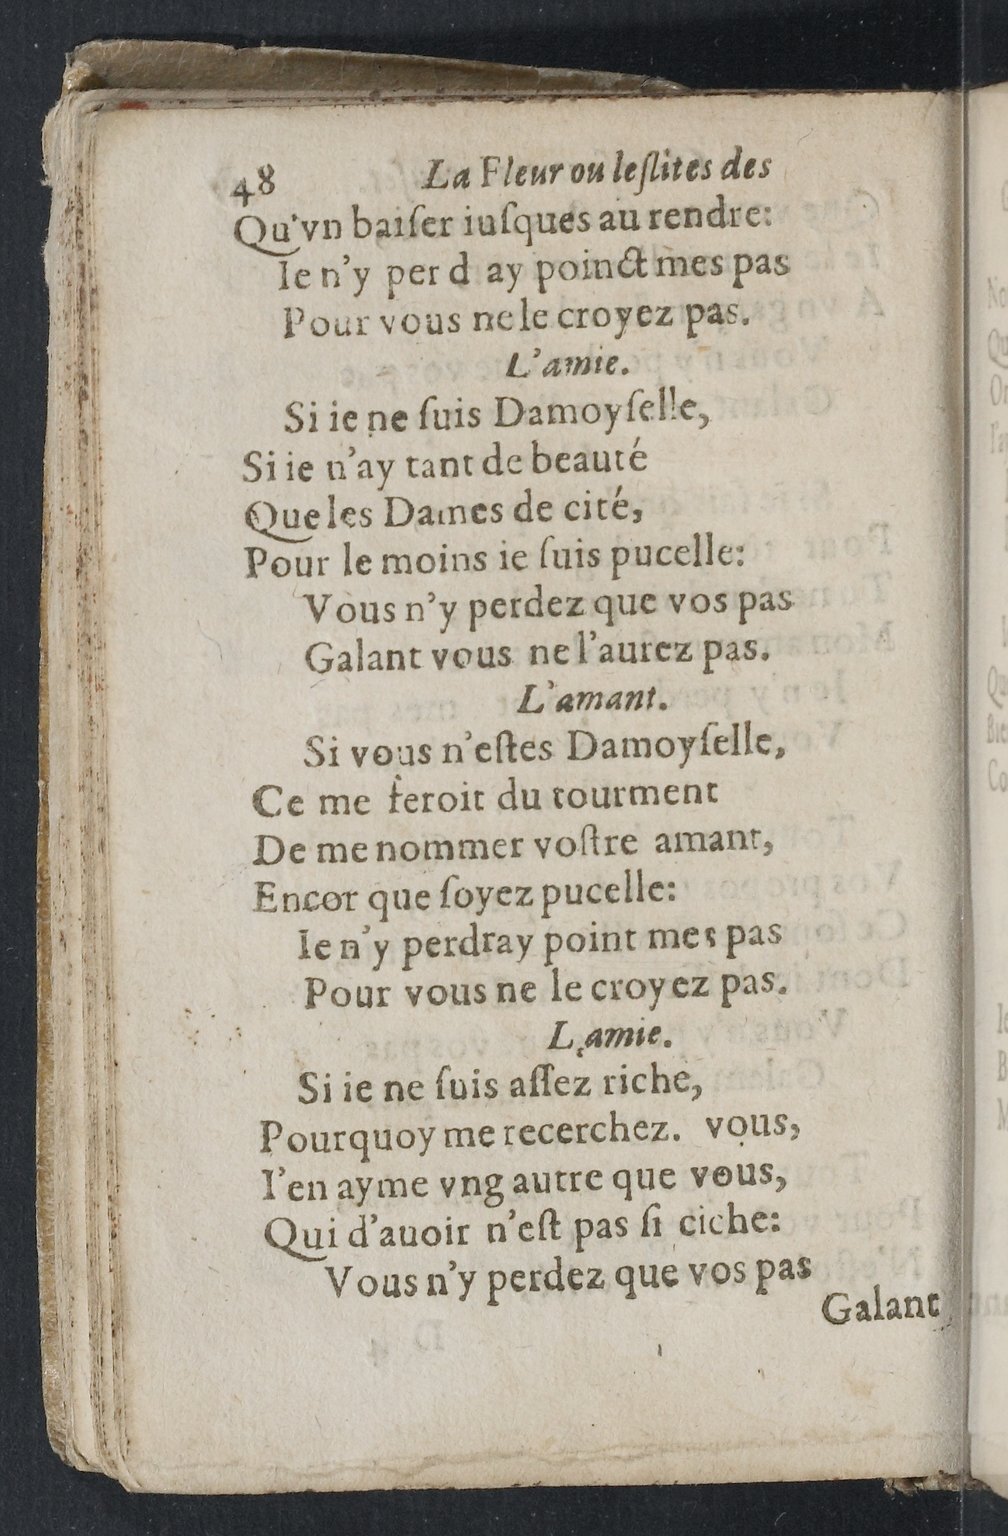 48 La Fleur ou leſlites des
Qu'vn baiſer iuſques au rendre:
Ie n'y perd ay poinct mes pas
Pour vous ne le croyez pas.
L'amie.
Si ie ne ſuis Damoyſelle,
Si ie n'ay tant de beauté
Que les Dames de cité,
Pour le moins ie ſuis pucelle:
Vous n'y perdez que vos pas
Galant vous ne l'aurez pas.
L'amant.
Si vous n'eſtes Damoyſelle,
Ce me ſeroit du tourment
De me nommer voſtre amant,
Encor que ſoyez pucelle:
Ie n'y perdray point mes pas
Pour vous ne le croyez pas.
L amie.
Si ie ne ſuis aſſez riche,
Pourquoy me recerchez. vous,
I'en ayme vng autre que vous,
Qui d'auoir n'eſt pas ſi ciche:
Vous n'y perdez que vos pas
Galant